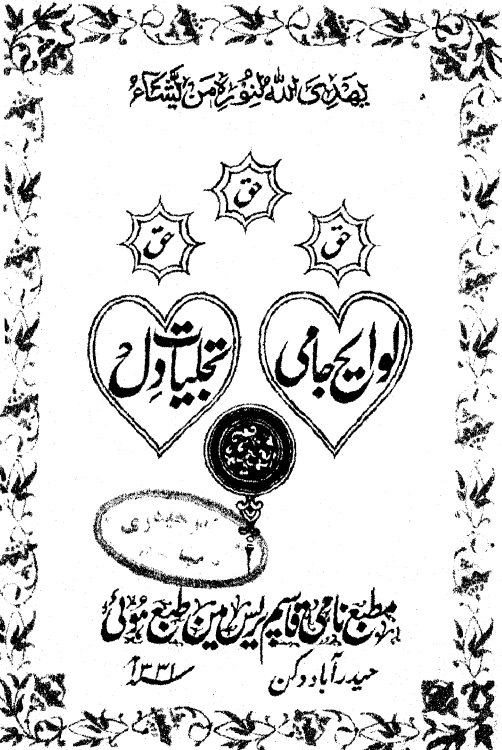 یھدی اللہ لنورہ من یشاء
حق
حق
حق
لوایح جامی
تجلیات دل
حیدری
مطبع نامی قاسم پریس مین طبع ہوئی
حیدرآباد دکن
۱۳۳۱